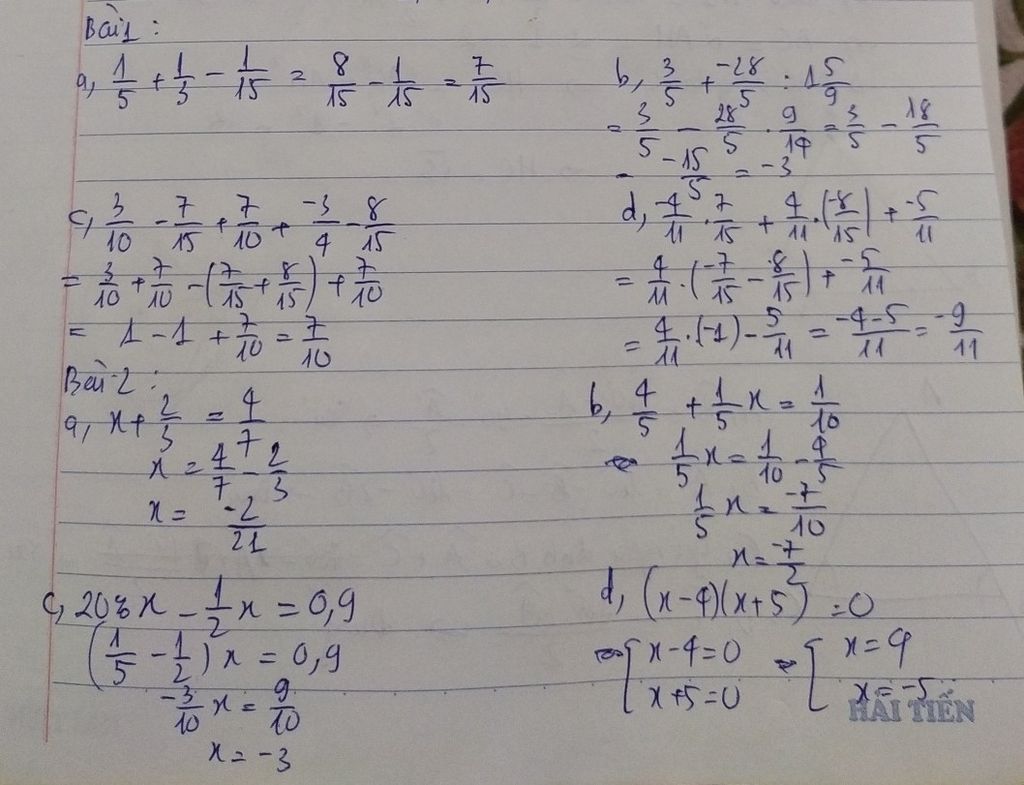 Bài 1 :
a, 1/5 + 1/3 - 1/15 = 8/15 - 1/15 = 7/15
b, 3/5 + -28/5 : 1 5/9
= 3/5 - 28/5 . 9/14 = 3/5 - 18/5
= -15/5 = -3
c, 3/10 - 7/15 + 7/10 + -3/4 - 8/15
= 3/10 + 7/10 - (7/15 + 8/15) + 7/10
= 1 - 1 + 7/10 = 7/10
d, -4/11 . 7/15 + 4/11 . (-8/15) + -5/11
= 4/11 . (-7/15 - 8/15) + -5/11
= 4/11 . (-1) - 5/11 = -4-5/11 = -9/11
Bài 2 :
a, x + 2/3 = 4/7
x = 4/7 - 2/3
x = -2/21
b, 4/5 + 1/5 x = 1/10
1/5 x = 1/10 - 4/5
1/5 x = -7/10
x = -7/2
c, 20% x - 1/2 x = 0,9
(1/5 - 1/2) x = 0,9
-3/10 x = 9/10
x = -3
d, (x-4)(x+5) = 0
[ x-4=0 [ x=4
x+5=0 x=-5
HẢI TIẾN